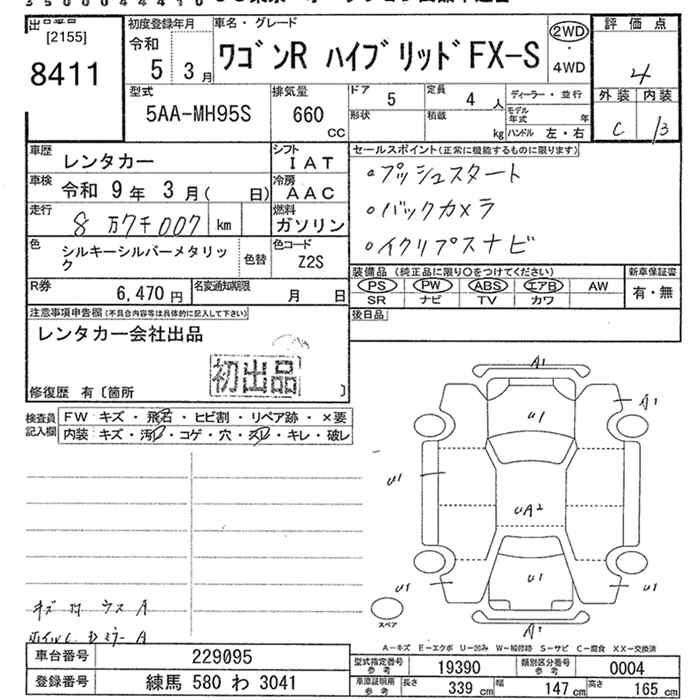 出品番号
[2155]
8411
初度登録年月
令和
5 3月
車名・グレード
ワゴンR ハイブリッドFX-S
2WD
・
4WD
評価点
4
外装 内装
C B
型式
5AA-MH95S
排気量
660
CC
ドア 5
形状
定員 4 人
積載 kg
ディーラー・並行
モデル年式 年
ハンドル 左・右
車歴 レンタカー
シフト
IAT
車検 令和 9年 3月( 日)
冷房
AAC
走行 8万7千007 km
燃料
ガソリン
色 シルキーシルバーメタリック
色替
色コード
Z2S
R券 6,470円
名変通知期限 月 日
セールスポイント(正常に機能するものに限ります)
・プッシュスタート
・バックカメラ
・イクリプスナビ
装備品 (純正品に限り○をつけてください)
PS PW ABS エアB AW
SR ナビ TV カワ
新車保証書
有・無
後日品
注意事項申告欄(不具合内容等は具体的に記入して下さい)
レンタカー会社出品
初出品
修復歴 有〔箇所 〕
検査員記入欄
FW キズ・飛石・ヒビ割・リペア跡・×要
内装 キズ・汚レ・コゲ・穴・スレ・キレ・破レ
A1
A1
U1
U1
UA2
U1
U1
U1
A1
スペア
キズ 凹 ウス A
ホイルC ミラーA
A-キズ E-エクボ U-凹み W-補修跡 S-サビ C-腐食 XX-交換済
車台番号 229095
登録番号 練馬 580 わ 3041
型式指定番号
参考
19390
類別区分番号
参考
0004
車庫証明用
参考
長さ 339 cm 幅 147 cm 高さ 165 cm